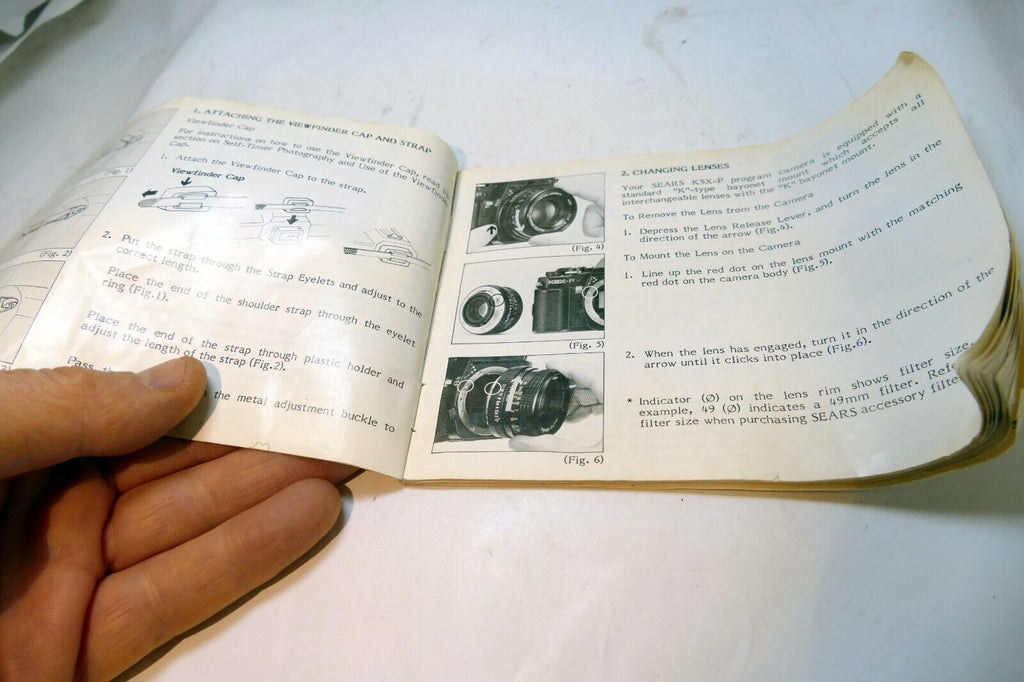 1. ATTACHING THE VIEWFINDER CAP AND STRAP
Viewfinder Cap
For instructions on how to use the Viewfinder Cap, read
section on Self-Timer Photography and Use of the Viewfinder
Cap.
1. Attach the Viewfinder Cap to the strap.
Viewfinder Cap
2. Put the strap through the Strap Eyelets and adjust to the
correct length.
Place the end of the shoulder strap through the eyelet
ring (Fig.1).
Place the end of the strap through plastic holder and
adjust the length of the strap (Fig.2).
Pass
the metal adjustment buckle to
(Fig. 2)
2. CHANGING LENSES
Your SEARS KSX-P program camera is equipped with a
standard "K"-type bayonet mount which accepts all
interchangeable lenses with the "K" bayonet mount.
To Remove the Lens from the Camera
1. Depress the Lens Release Lever, and turn the lens in the
direction of the arrow (Fig.4).
To Mount the Lens on the Camera
1. Line up the red dot on the lens mount with the matching
red dot on the camera body (Fig.5).
2. When the lens has engaged, turn it in the direction of the
arrow until it clicks into place (Fig.6).
* Indicator (Ø) on the lens rim shows filter size,
example, 49 (Ø) indicates a 49mm filter.
filter size when purchasing SEARS accessory
(Fig. 4)
(Fig. 5)
(Fig. 6)